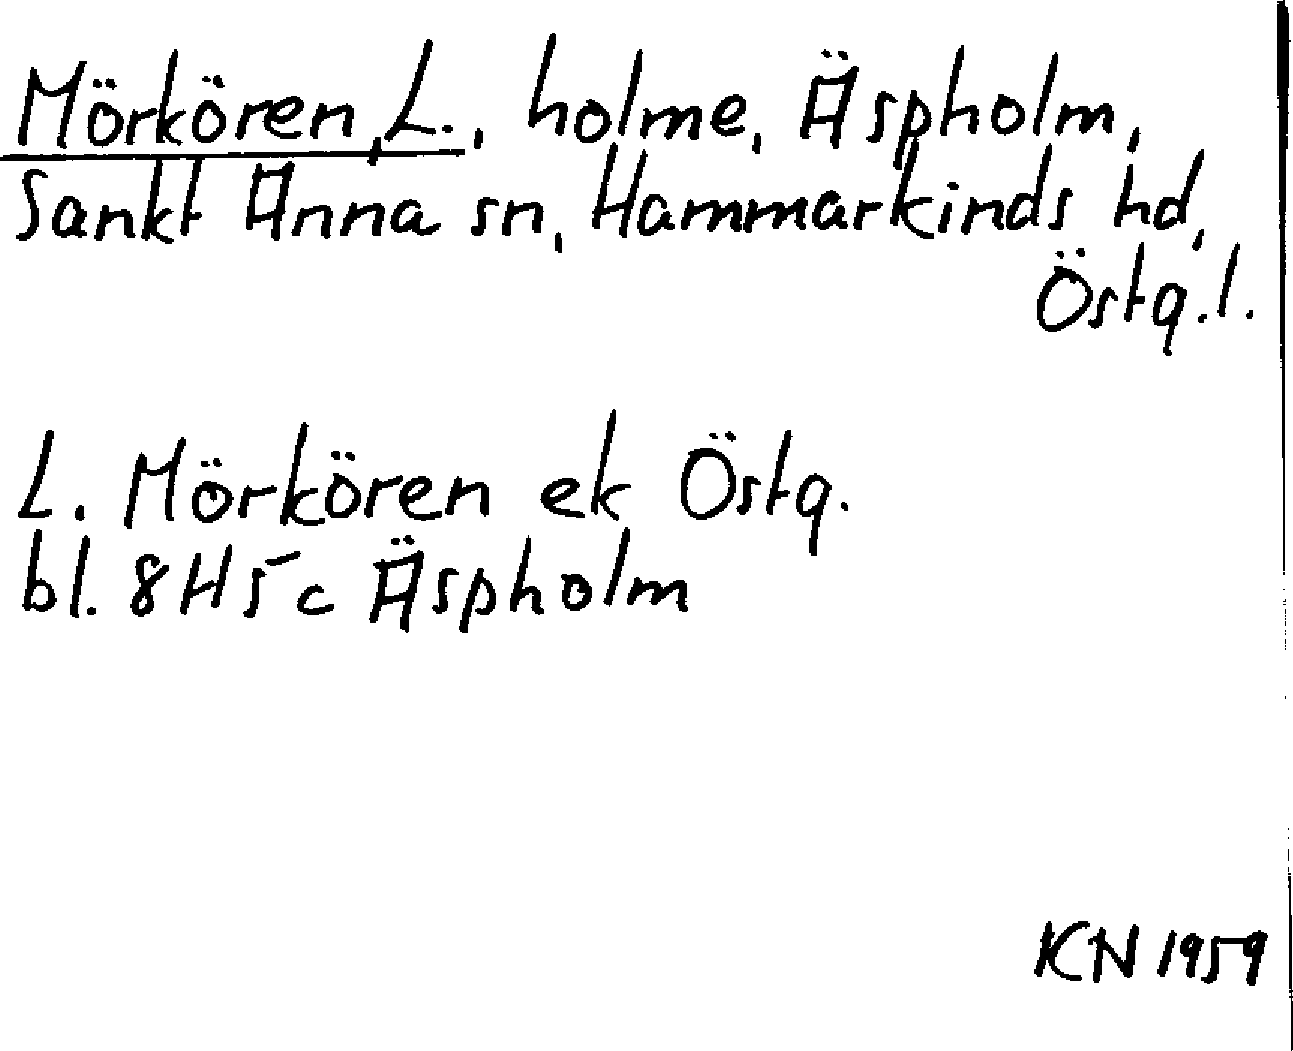 Mörkören, L., holme, Äspholm,
Sankt Anna sn, Hammarkinds hd,
Östg.l.
L. Mörkören ek Östg.
bl. 8H5c Äspholm
KN 1959